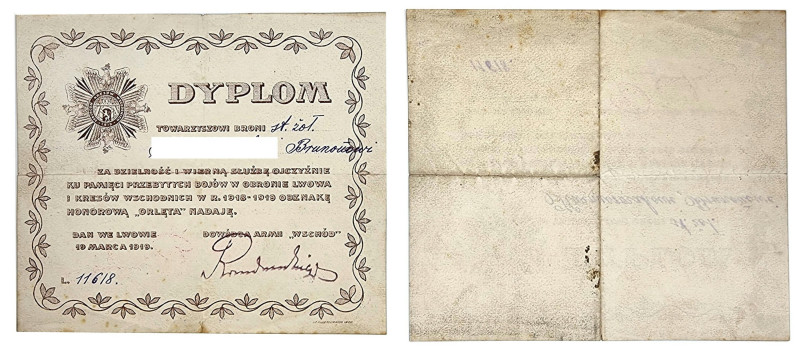 DYPLOM
TOWARZYSZOWI BRONI st. żoł.
Brunonowi
ZA DZIELNOŚĆ I WIERNĄ SŁUŻBĘ OJCZYŹNIE
KU PAMIĘCI PRZEBYTYCH BOJÓW W OBRONIE LWOWA
I KRESÓW WSCHODNICH W R. 1918-1919 ODZNAKĘ
HONOROWĄ „ORLĘTA” NADAJĘ.
DAN WE LWOWIE
19 MARCA 1919.
DOWÓDCA ARMII „WSCHÓD”
L. 11618.